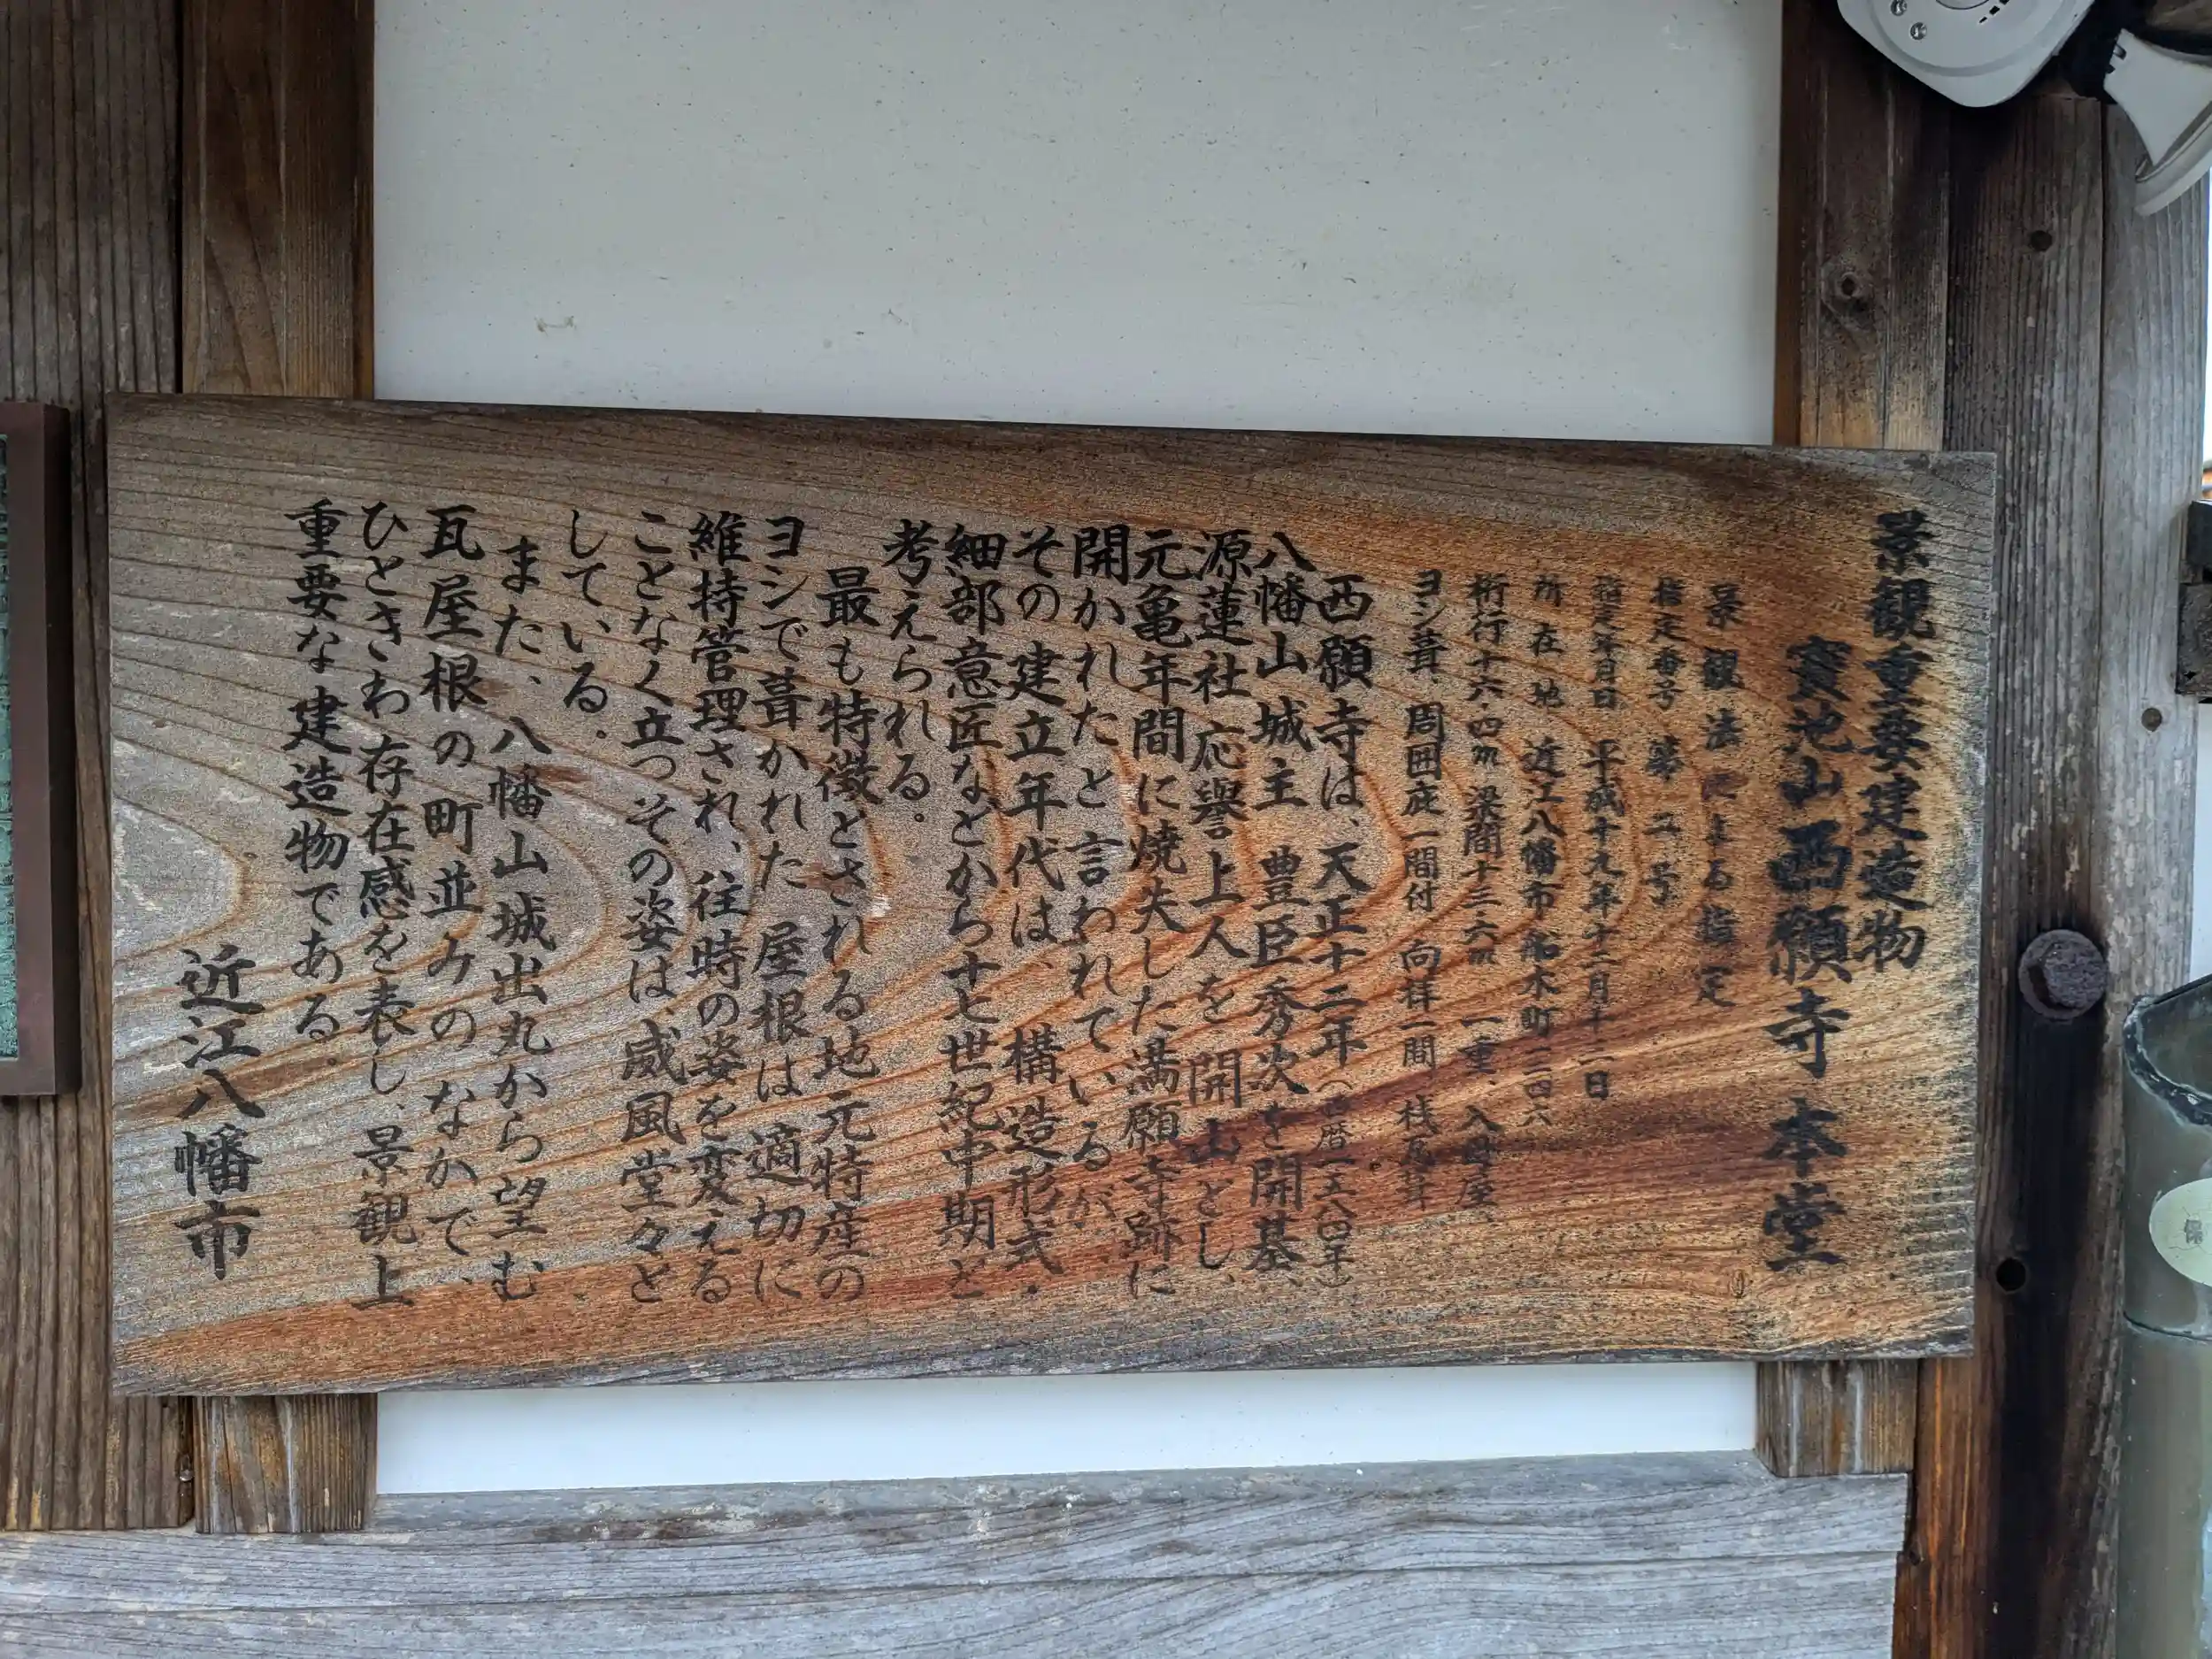 景観重要建造物
寳池山西願寺本堂
景観法による指定
指定番号 第二号
指定年月日 平成十九年十二月十二日
所在地 近江八幡市船木町一二四六
桁行十六・四m 梁間十三・六m 一重、入母屋、
ヨシ葺、周囲庇一間付 向拝一間 桟瓦葺
西願寺は、天正十二年(西暦一五八四年)
八幡山城主 豊臣秀次を開基、
源蓮社応譽上人を開山とし、
元亀年間に焼失した満願寺跡に
開かれたと言われているが、
その建立年代は、構造形式・
細部意匠などから十七世紀中期と
考えられる。
最も特徴とされる地元特産の
ヨシで葺かれた屋根は適切に
維持管理され、往時の姿を変える
ことなく立つその姿は、威風堂々と
している。
また、八幡山城出丸から望む
瓦屋根の町並みのなかで、
ひときわ存在感を表し、景観上
重要な建造物である。
近江八幡市